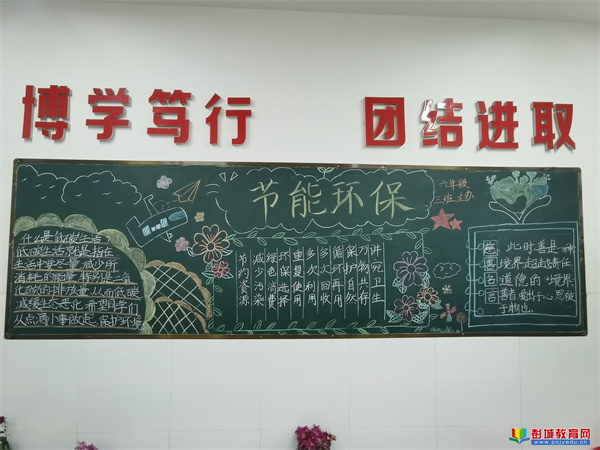 博学笃行
团结进取
节能环保
六年级
三班 立办
什么是低碳生活？
低碳生活就是指在
生活中要尽量减少所
消耗的能量，特别是二氧
化碳的排放量，从而低碳，
减缓生态恶化，希望同学们
从点滴小事做起，保护环境
节约资源
减少污染
绿色消费
环保选择
重复使用
多次利用
多次回收
循环再用
保护自然
万物共存
讲究卫生
此时善是一种
境界超出责任
道德的境界
善者爱出于心，恩被
于物也。
彭城教育网
www.pcjyedu.cn